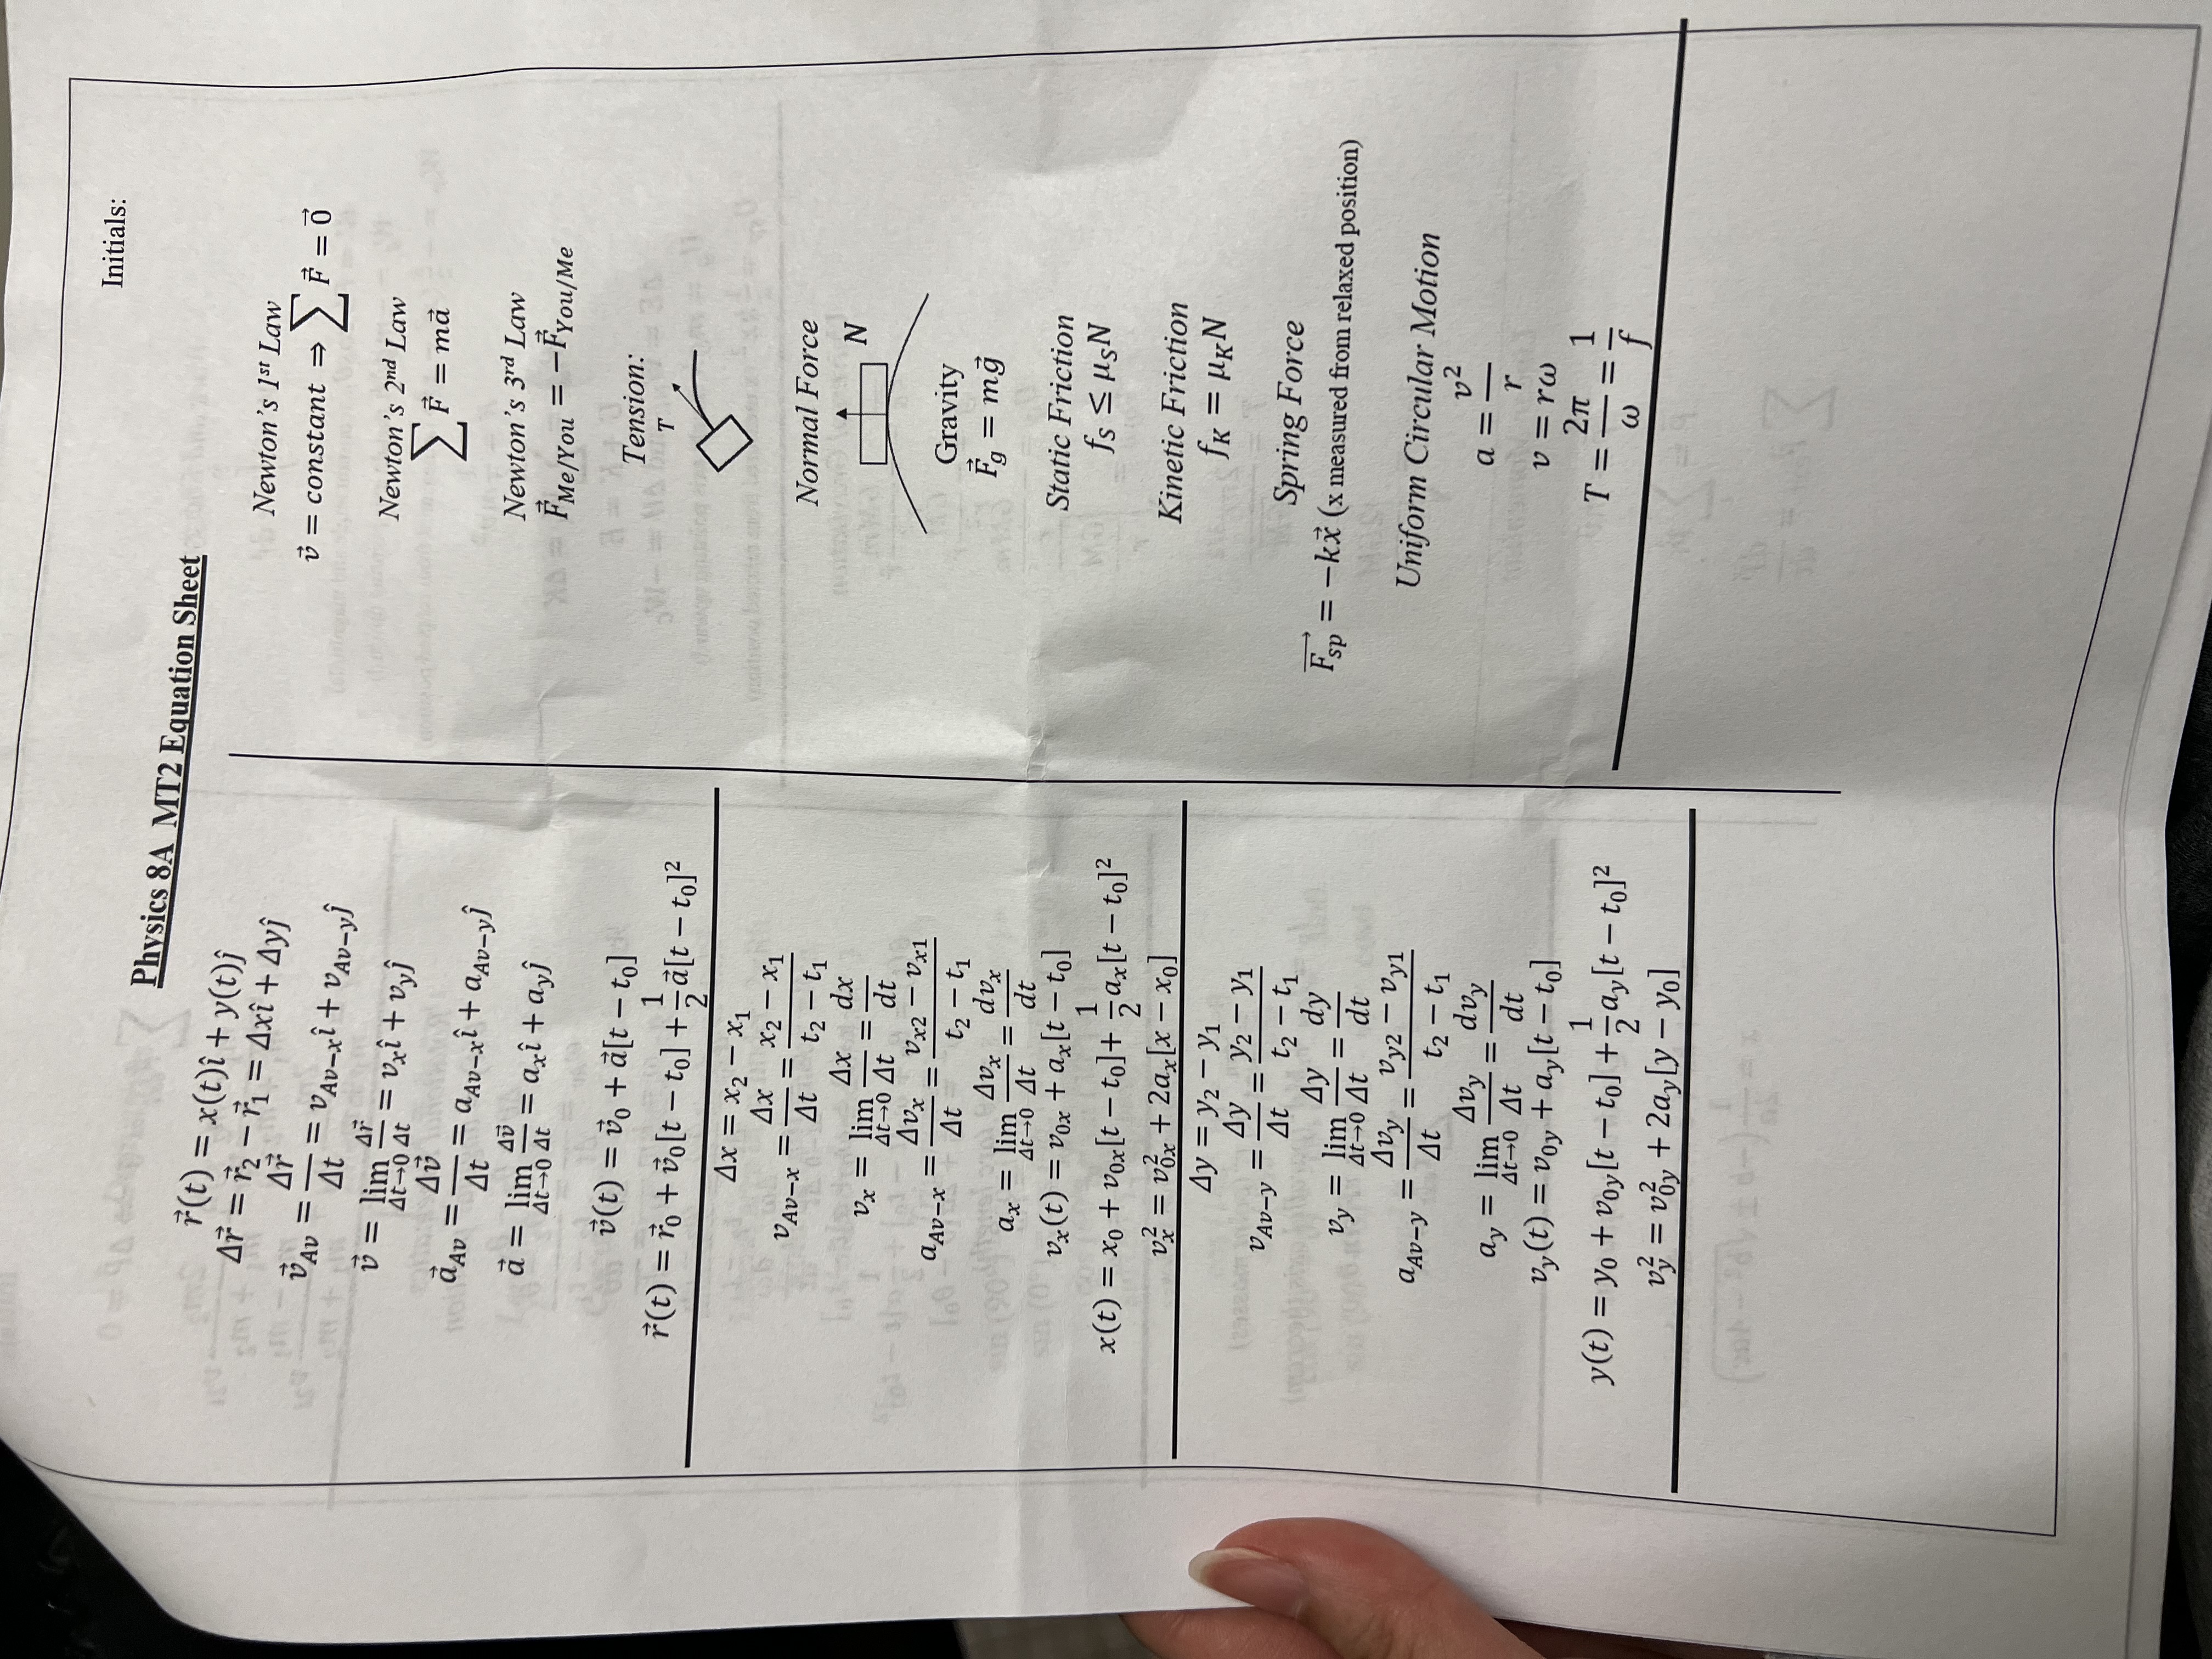 Initials:
Physics 8A MT2 Equation Sheet
r⃗(t) = x(t)î + y(t)ĵ
Δr⃗ = r⃗₂ − r⃗₁ = Δxî + Δyĵ
v⃗_Av = Δr⃗/Δt = v_Av−x î + v_Av−y ĵ
v⃗ = lim Δt→0 Δr⃗/Δt = v_x î + v_y ĵ
a⃗_Av = Δv⃗/Δt = a_Av−x î + a_Av−y ĵ
a⃗ = lim Δt→0 Δv⃗/Δt = a_x î + a_y ĵ
v⃗(t) = v⃗₀ + a⃗[t − t₀]
r⃗(t) = r⃗₀ + v⃗₀[t − t₀] + 1/2 a⃗[t − t₀]²
Δx = x₂ − x₁
v_Av−x = Δx/Δt = (x₂ − x₁)/(t₂ − t₁)
v_x = lim Δt→0 Δx/Δt = dx/dt
a_Av−x = Δv_x/Δt = (v_x2 − v_x1)/(t₂ − t₁)
a_x = lim Δt→0 Δv_x/Δt = dv_x/dt
v_x(t) = v_0x + a_x[t − t₀]
x(t) = x₀ + v_0x[t − t₀] + 1/2 a_x[t − t₀]²
v_x² = v_0x² + 2a_x[x − x₀]
Δy = y₂ − y₁
v_Av−y = Δy/Δt = (y₂ − y₁)/(t₂ − t₁)
v_y = lim Δt→0 Δy/Δt = dy/dt
a_Av−y = Δv_y/Δt = (v_y2 − v_y1)/(t₂ − t₁)
a_y = lim Δt→0 Δv_y/Δt = dv_y/dt
v_y(t) = v_0y + a_y[t − t₀]
y(t) = y₀ + v_0y[t − t₀] + 1/2 a_y[t − t₀]²
v_y² = v_0y² + 2a_y[y − y₀]
Newton's 1st Law
v⃗ = constant ⇒ ∑ F⃗ = 0⃗
Newton's 2nd Law
∑ F⃗ = ma⃗
Newton's 3rd Law
F⃗_Me/You = −F⃗_You/Me
Tension:
T
Normal Force
N
Gravity
F⃗_g = mg⃗
Static Friction
f_S ≤ μ_S N
Kinetic Friction
f_K = μ_K N
Spring Force
F⃗_sp = −kx⃗ (x measured from relaxed position)
Uniform Circular Motion
a = v²/r
v = rω
T = 2π/ω = 1/f